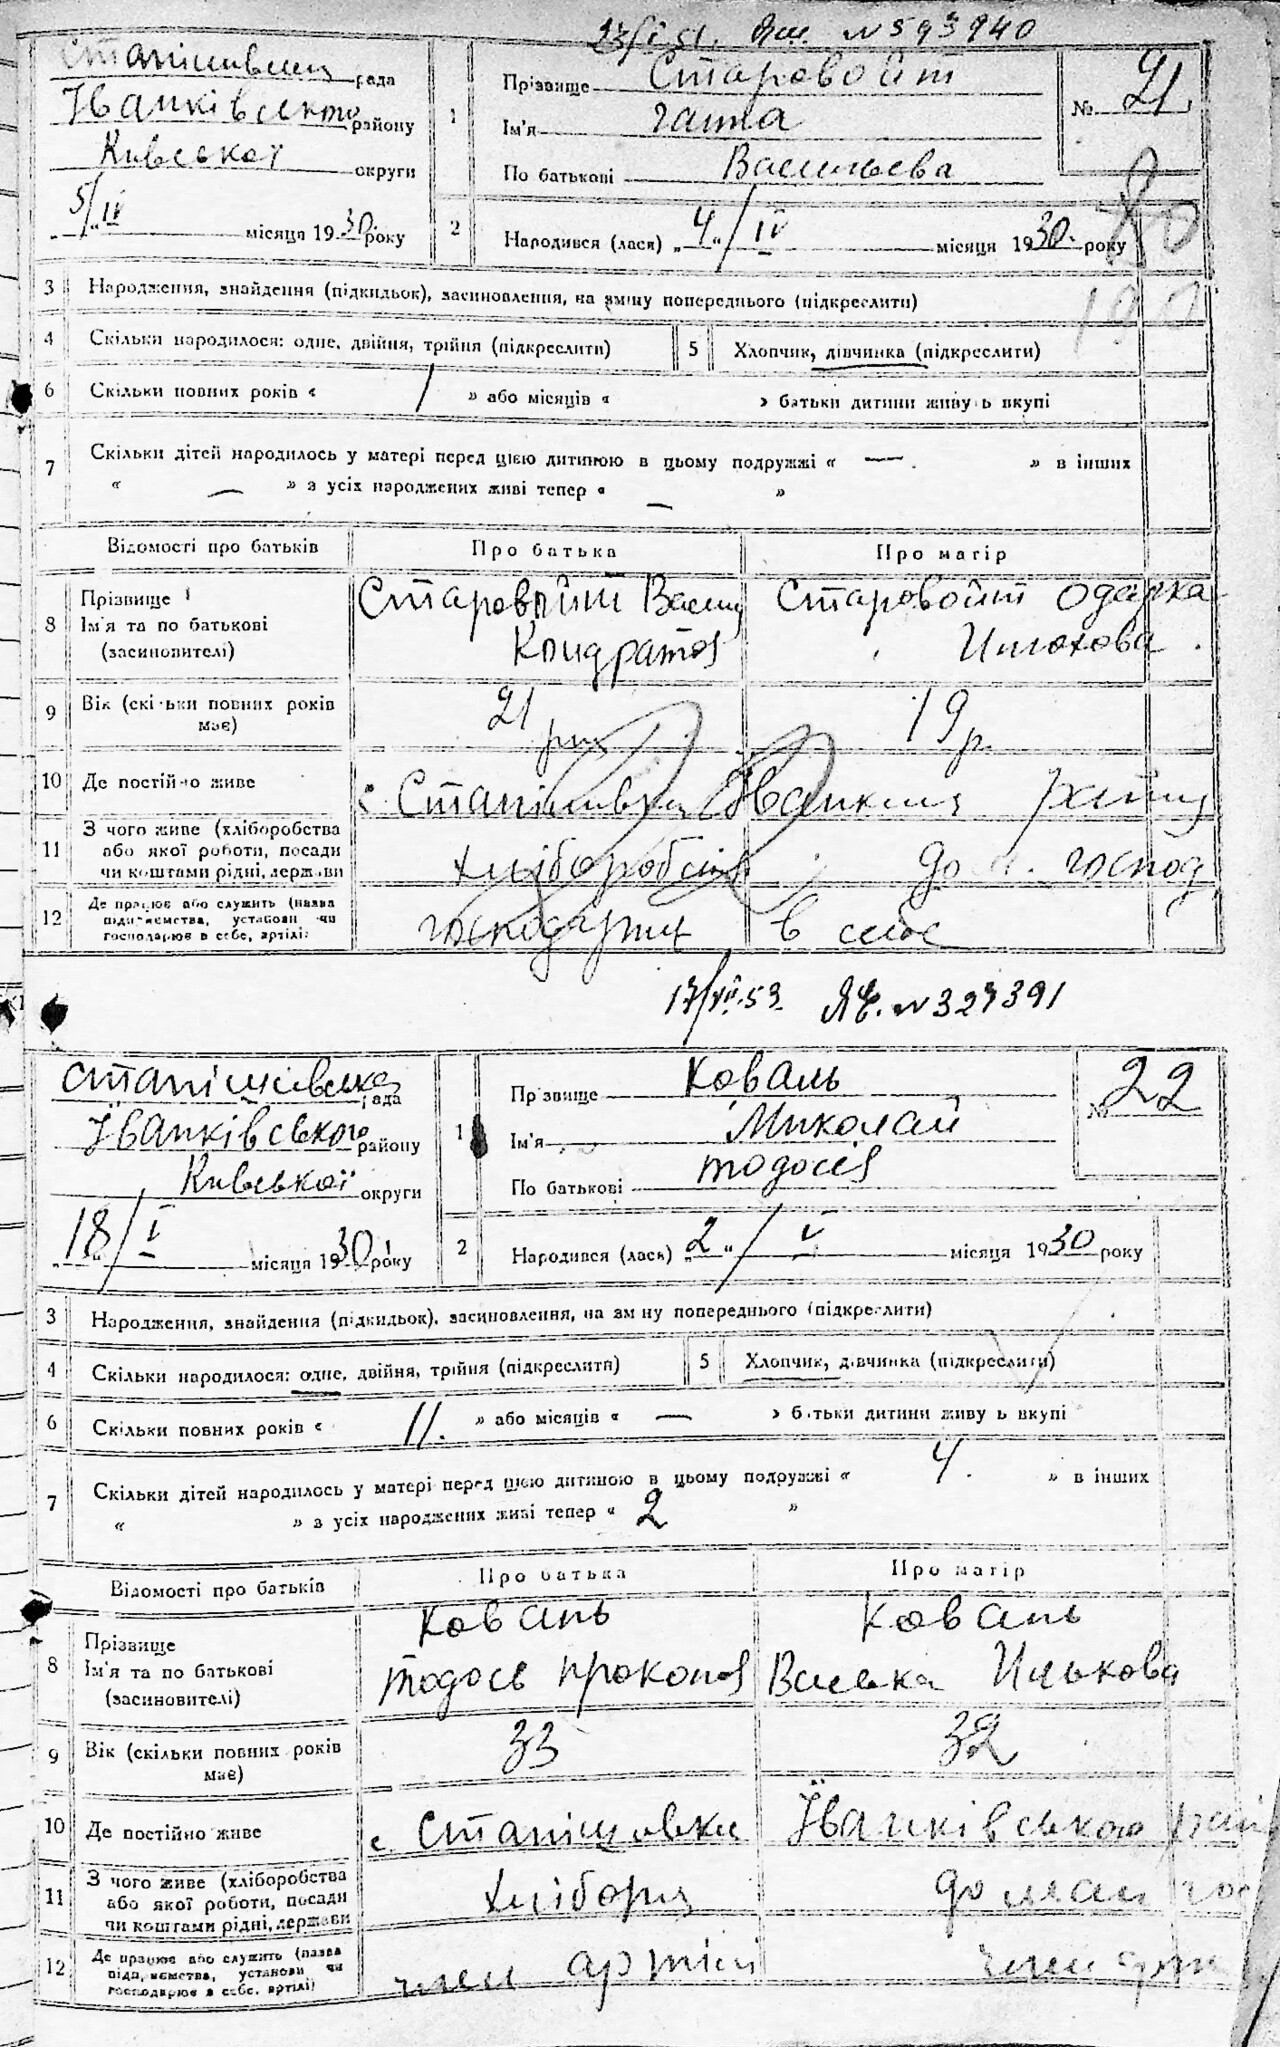 23/I 51. Яш. N 593940
Станішивська рада
Іванківського району
Київської округи
„5/IV місяця 1930 року
1
Прізвище Старовойт
Ім'я Ганна
По батькові Васильєва
№ 21
2
Народився (лася) „4“/IV місяця 1930. року
3 Народження, знайдення (підкидьок), засиновлення, на зміну попереднього (підкреслити)
4 Скільки народилося: одне, двійня, трійня (підкреслити)
5 Хлопчик, дівчинка (підкреслити)
6 Скільки повних років « / » або місяців « » батьки дитини живуть вкупі
7 Скільки дітей народилось у матері перед цією дитиною в цьому подружжі « — » в інших
« — » з усіх народжених живі тепер « — »
Відомості про батьків
Про батька
Про матір
8
Прізвище
Ім'я та по батькові
(засиновителі)
Старовойт Васил
Кондратов
Старовойт Одарка
9 Вік (скільки повних років
має)
21
19 р.
10 Де постійно живе
с.
11
З чого живе (хліборобства
або якої роботи, посади
чи коштами рідні, держави
дом. господ
12
Де працює або служить (назва
підприємства, установи чи
господарює в себе, артілі)
в себе
17/VII-53. ЯЄ. N 327391
Станішивська рада
Іванківського району
Київської округи
„18/V місяця 1930 року
1
Прізвище Коваль
Ім'я Миколай
По батькові Тодосів
№ 22
2
Народився (лася) „2“/V місяця 1930 року
3 Народження, знайдення (підкидьок), засиновлення, на зміну попереднього (підкреслити)
4 Скільки народилося: одне, двійня, трійня (підкреслити)
5 Хлопчик, дівчинка (підкреслити)
6 Скільки повних років « 11. » або місяців « — » батьки дитини живуть вкупі
7 Скільки дітей народилось у матері перед цією дитиною в цьому подружжі « 4. » в інших
« » з усіх народжених живі тепер « 2 »
Відомості про батьків
Про батька
Про матір
8
Прізвище
Ім'я та по батькові
(засиновителі)
Коваль
Тодось Прокопов
Коваль
Васька Илькова
9 Вік (скільки повних років
має)
33
32
10 Де постійно живе
с. Станішовки Іванківського рай
11
З чого живе (хліборобства
або якої роботи, посади
чи коштами рідні, держави
хлібороб
домаш гос
12
Де працює або служить (назва
підприємства, установи чи
господарює в себе, артілі)
член артілі
член арт